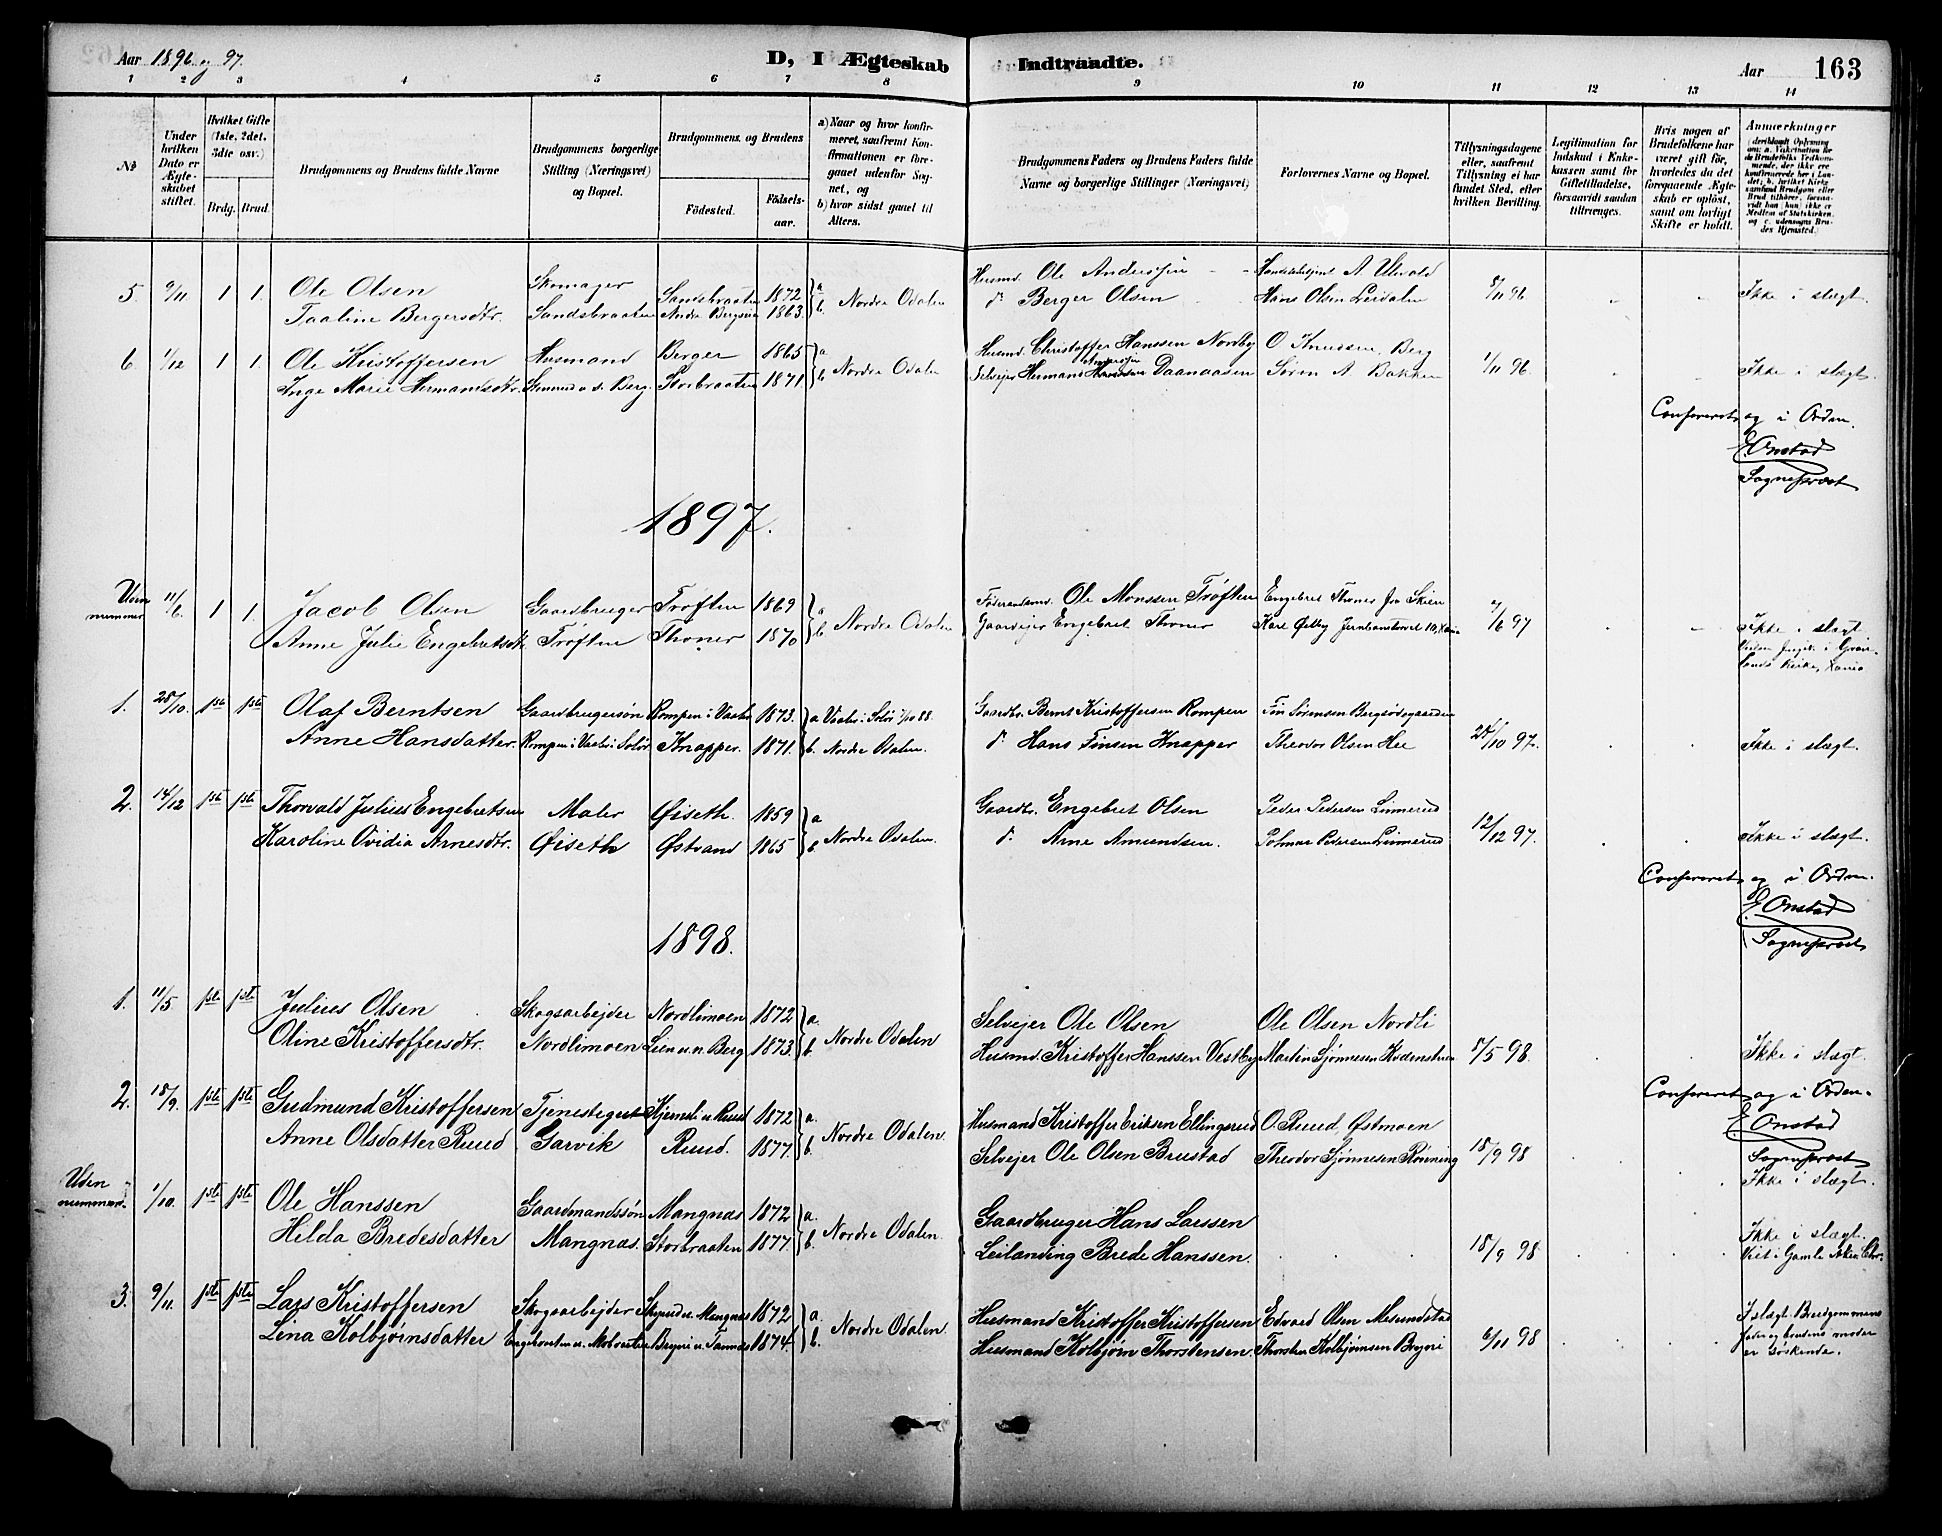 Aar 1896 og 97.
D, I Ægteskab Indtraadte.
Aar 163
1 2 3 4 5 6 7 8 9 10 11 12 13 14
No
Under hvilken Dato er Ægteskabet stiftet.
Hvilket Gifte (1ste, 2det, 3die osv.)
Brdg. Brud.
Brudgommens og Brudens fulde Navne
Brudgommens borgerlige Stilling (Næringsvei) og Bopæl.
Brudgommens og Brudens
Födested.
Födselsaar.
a) Naar og hvor konfirmeret, saafremt Konfirmationen er foregaaet udenfor Sognet, og
b) hvor sidst gaaet til Alters.
Brudgommens Faders og Brudens Faders fulde Navne og borgerlige Stillinger (Næringsvei)
Forlovernes Navne og Bopæl.
Tillysningsdagene eller, saafremt Tillysning ei har fundet Sted, efter hvilken Bevilling.
Legitimation for Indskud i Enkekassen samt for Giftetilladelse, forsaavidt saadan tiltrænges.
Hvis nogen af Brudefolkene har været gift för, hvorledes da det foregaaende Ægteskab er oplöst, samt om lovligt Skifte er holdt.
Anmærkninger
5 9/11 1 1. Ole Olsen Skomager Sandsbraaten 1872 a Husmd. Ole Anderssen A Ulvold 8/11 96 Ikke i slægt.
Taaline Bergersdtr. Sandsbraaten 1863 b. Nordre Odalen d° Berger Olsen Hans Olsen Leirdalen
6. 1/12 1 1. Ole Kristoffersen Husmand Berger 1865 a Husmd. Christoffer Hanssen Nordby O Knudsen, Berg 1/11 96. Ikke i slægt.
Inge Marie Hermandsdtr. Berg. Storbraaten 1871 b. Nordre Odalen Selvejer Hermans Anderssen Daanaasen Sören A Bakken
Confereret og i Orden.
E. Onstad
Sogneprest
1897.
Uden nummer 11/6. 1 1. Jacob Olsen Gaardbruger Trøften 1869 a Föderaadsmd. Ole Monssen Trøften Engebret Thoner fra Skien /6 97 Ikke i slægt
Anne Julie Engebretsdtr Trøften Thoner 1870 b. Nordre Odalen Gaardejer Engebret Thoner Karl Østby Jernbanetorvet 10, Xania
Grønlands Kirke, Xania
1. 28/10. 1ste 1ste Olaf Berntsen Gaardbrugersøn Rompen i Vaaler 1873. a Vaaler i Solør 7/10 88. Gaardbr. Bernt Kristoffersen Rompen Finn Sørensen Bergsødegaarden 24/10 97. Ikke i slægt.
Anne Hansdatter. Rompen i Vaaler i Solør Knapper. 1871. b. Nordre Odalen. d° Hans Finsen Knapper Theodor Olsen Hee
2. 14/12 1ste 1ste Thorvald Julius Engebretsen Maler Øiseth. 1859 a Gaardbr. Engebret Olsen Peder Pedersen Linnerud 12/12 97. Ikke i slægt.
Karoline Ovidia Arnesdtr. Øiseth Østvand 1865 b. Nordre Odalen. d° Arne Amundsen. Pedersen Linnerud
Confereret og i Orden.
E. Onstad
Sogneprest
1898.
1. 11/5 1ste 1ste Julius Olsen Skogsarbejder Nordlimoen 1872 a. Selvejer Ole Olsen Ole Olsen Nordli 8/5 98. Ikke i slægt.
Oline Kristoffersdtr. Nordlimoen Lien u.n. Berg 1873. b. Nordre Odalen Husmd. Kristoffer Hanssen Vestby Martin Sjønnesen
2. 18/9. 1ste 1ste Gudmund Kristoffersen Tjenestegut Kjerneli u. Ruud 1872 a. Husmand Kristoffer Eriksen Ellingsrud O. Ruud, Østmoen 18/9 98
Anne Olsdatter Ruud Garvik Ruud. 1877. b. Nordre Odalen. Selvejer Ole Olsen Brustad Theodor Sjønnesen Rønning
Confereret og i Orden.
E. Onstad
Sogneprest
Ikke i slægt.
Uden nummer. 1/10. 1ste 1ste Ole Hanssen Gaardmandssøn Mangnas 1872 a. Gaardbruger Hans Larssen 18/9 98 Ikke i slægt.
Helda Bredesdatter Mangnas. Storbraaten 1877. b. Nordre Odalen. Leilænding Brede Hanssen. Viet i Gamle Aker. Chr.
3. 9/11. 1ste 1ste Lars Kristoffersen Skogsarbejder u. Mangnas 1872 a. Husmand Kristoffer Kristoffersen Edvard Olsen 6/11 98 I slægt. Brudgommens
Lina Kolbjörnsdatter 1874. b. Nordre Odalen. Husmand Kolbjörn Thorstensen. Thorsten Kolbjörnsen Bryni fader og brudens moder
er söskende.